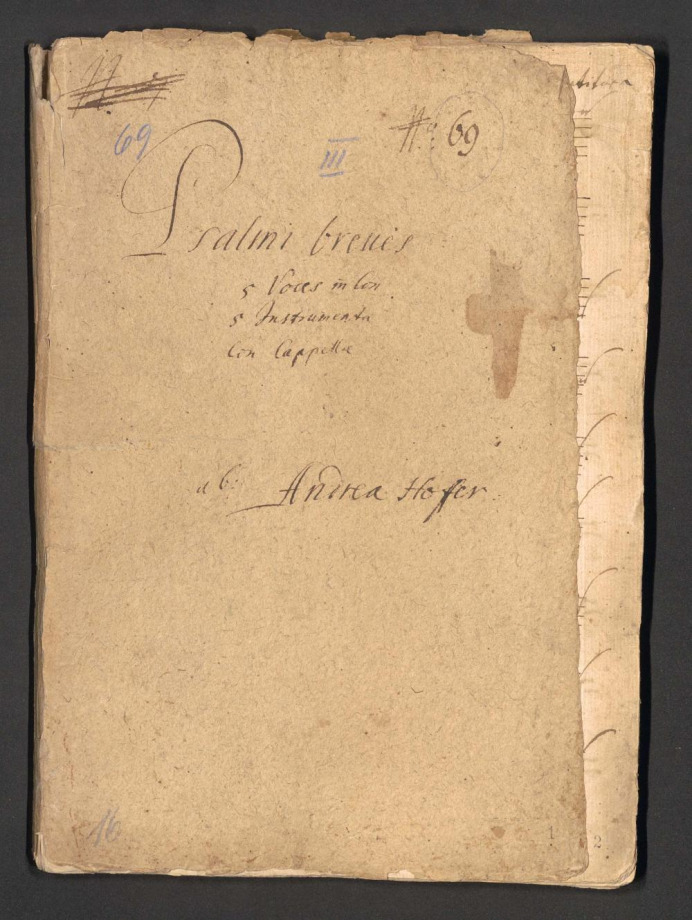 69
III
69
Psalmi breues
5 Voces in Con
5 Instrumenta
Con Cappella
ab: Andrea Hofer
16
1
2